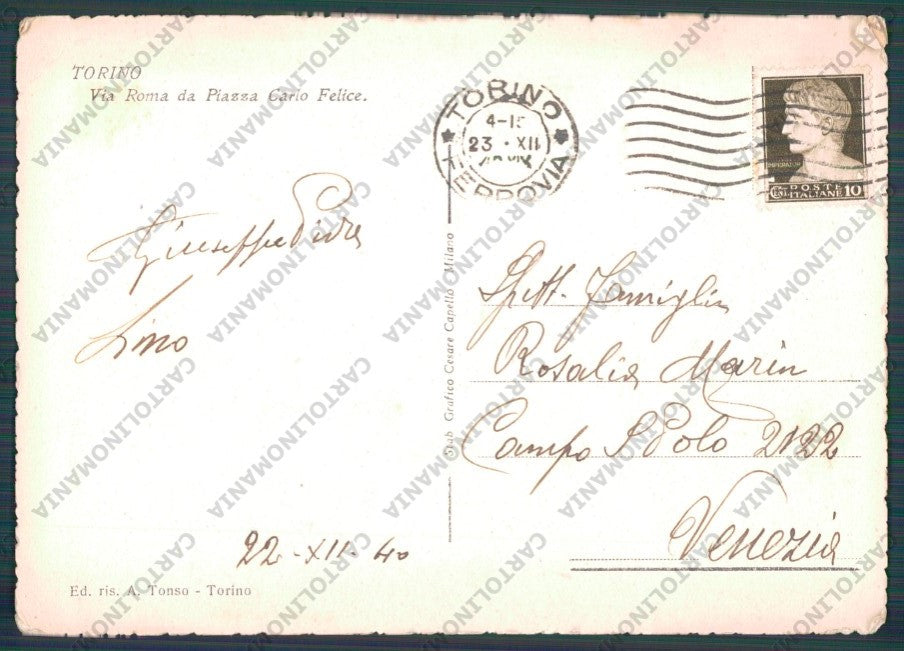 TORINO
Via Roma da Piazza Carlo Felice.
TORINO
4-15
23 · XII
FERROVIA
POSTE
ITALIANE 10
Giuseppe
Lino
Stab Grafico Cesare Capello - Milano
Spett. Famiglia
Rosalia Marin
Campo S Polo 2122
Venezia
22-XII-40
Ed. ris. A. Tonso - Torino
CARTOLINOMANIA